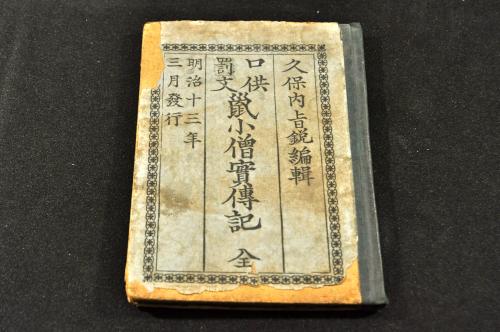 久保内旨鋭編輯
口供罰文鼠小僧實傳記 全
明治十三年
三月發行